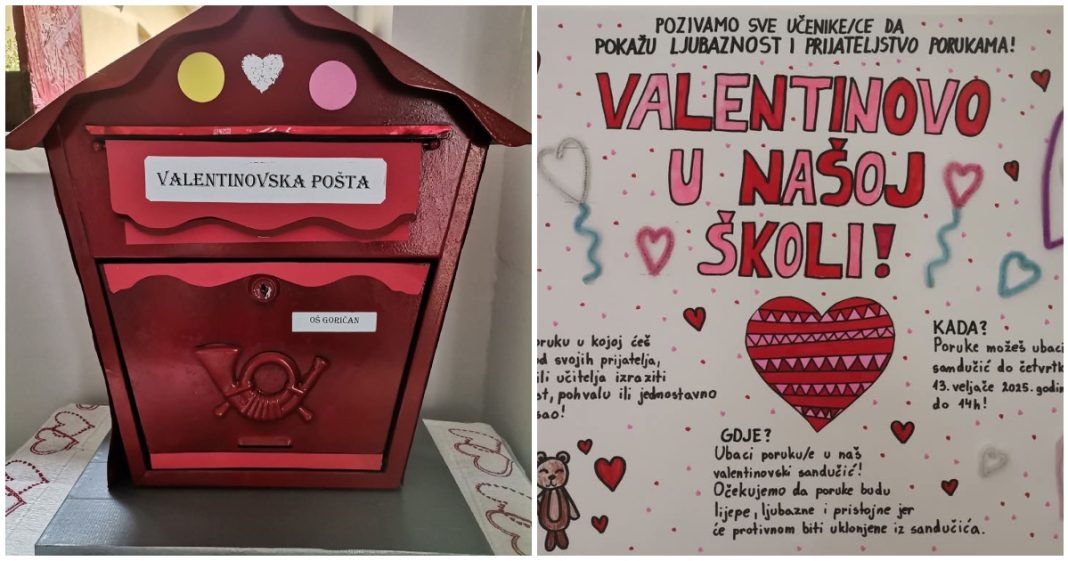 VALENTINOVSKA POŠTA
OŠ GORIČAN
POZIVAMO SVE UČENIKE/CE DA
POKAŽU LJUBAZNOST I PRIJATELJSTVO PORUKAMA!
VALENTINOVO
U NAŠOJ
ŠKOLI!
u kojoj ćeš
svojih prijatelja,
ili učitelja izraziti
pohvalu ili jednostavno
KADA?
Poruke možeš ubaci
sandučić do četvrtk
13. veljače 2025. godin
do 14h!
GDJE?
Ubaci poruku/e u naš
valentinovski sandučić!
Očekujemo da poruke budu
lijepe, ljubazne i pristojne jer
će protivnom biti uklonjene iz sandučića.